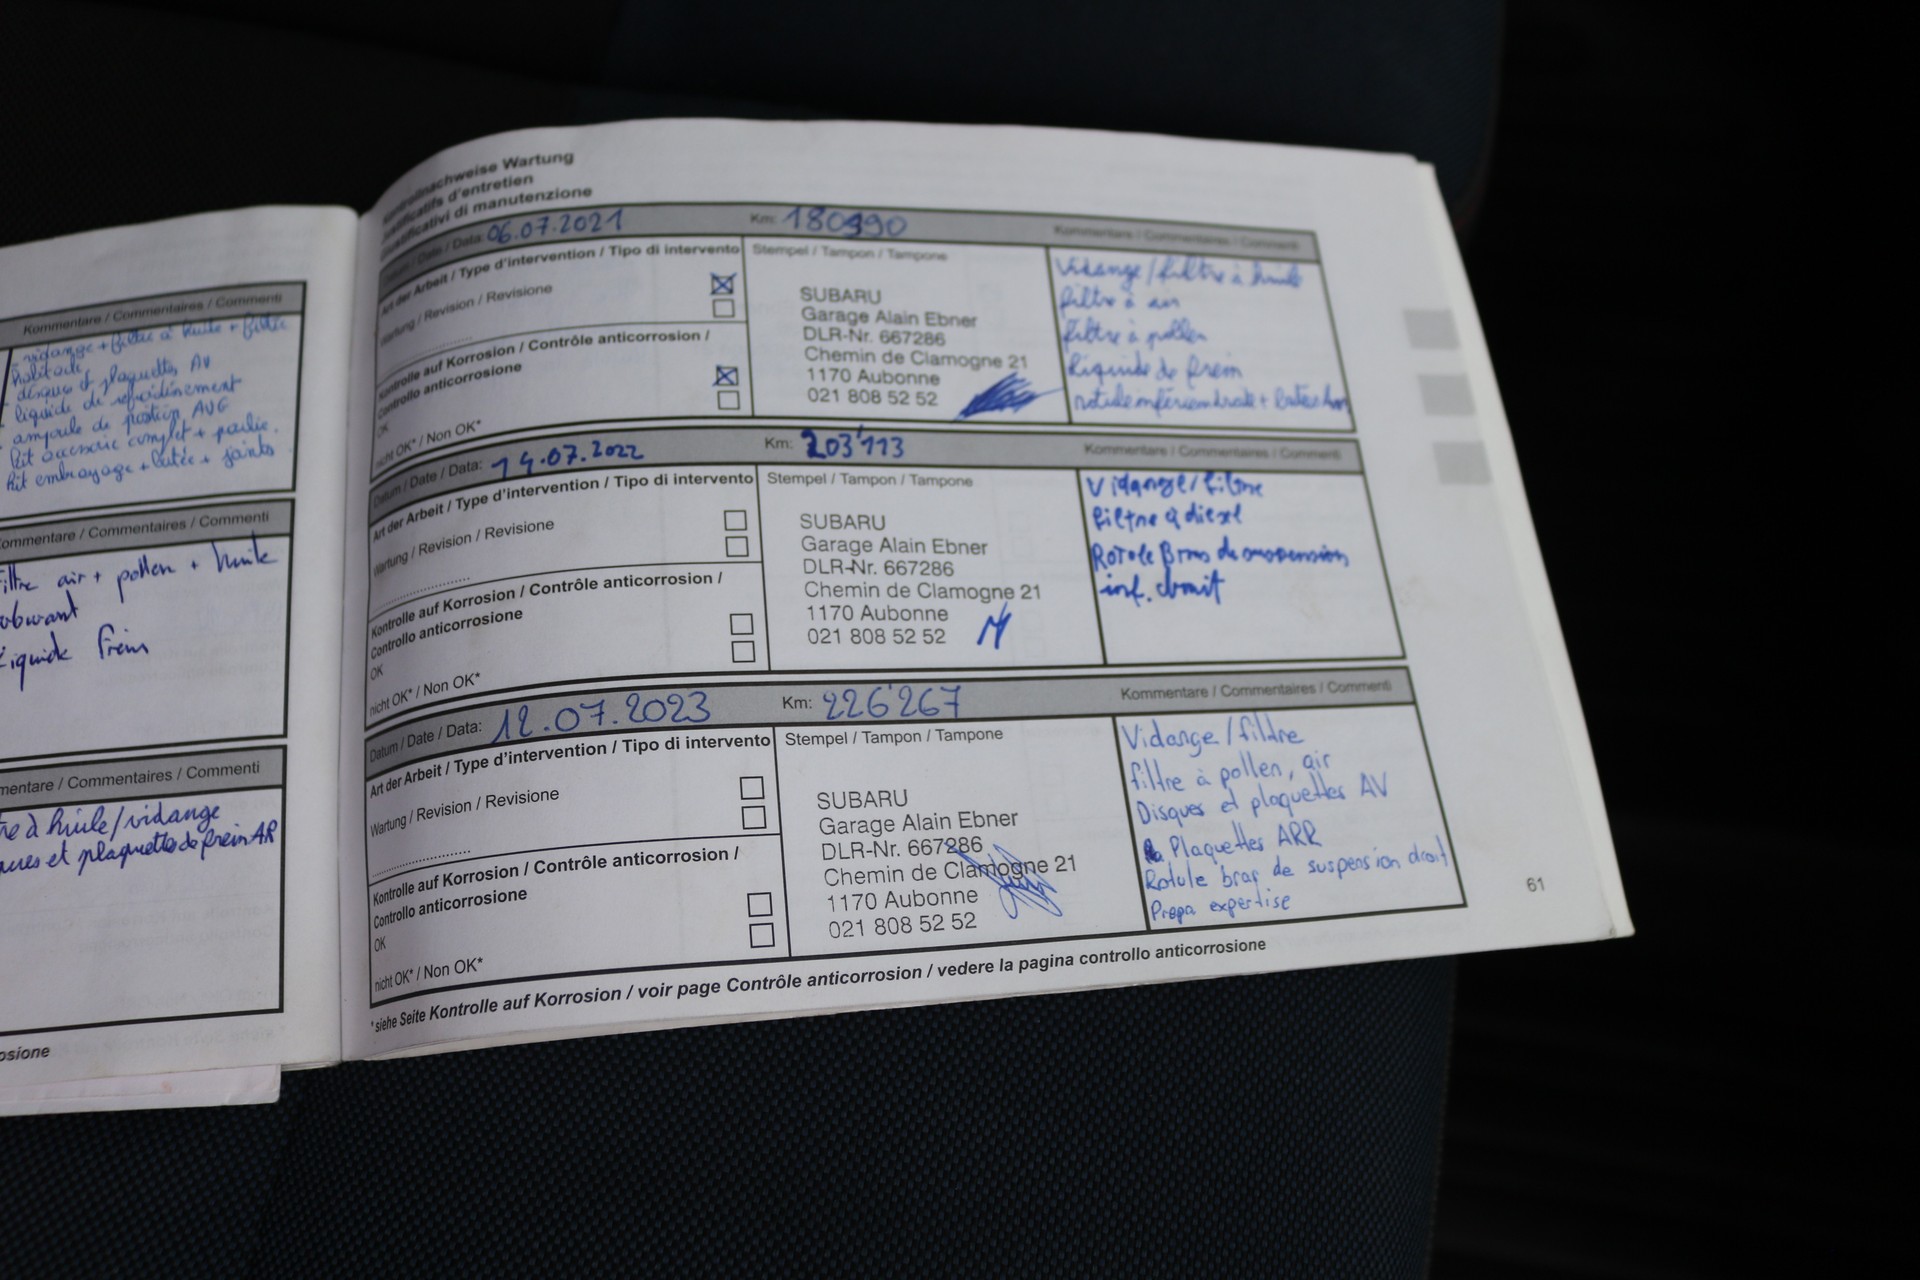 Kommentare / Commentaires / Commenti
vidange + filtre à huile + filtre
habitacle
disques et plaquettes AV
liquide de refroidissement
ampoule de position AVG
kit accessoire complet + poulie.
kit embrayage + butée + joints
ommentare / Commentaires / Commenti
iltre air + pollen + huile
iquide frein
mentare / Commentaires / Commenti
re à huile/vidange
ques et plaquettes de frein AR
osione
Kontrollnachweise Wartung
d'entretien
di manutenzione
Datum / Date / Data: 06.07.2021
Km: 180990
Kommentare / Commentaires / Commenti
Art der Arbeit / Type d'intervention / Tipo di intervento
Wartung / Revision / Revisione
Kontrolle auf Korrosion / Contrôle anticorrosion /
Controllo anticorrosione
OK
nicht OK* / Non OK*
Stempel / Tampon / Tampone
SUBARU
Garage Alain Ebner
DLR-Nr. 667286
Chemin de Clamogne 21
1170 Aubonne
021 808 52 52
Vidange/filtre à huile
filtre à air
filtre à pollen
liquide de frein
rotule inférieur droite +
Datum / Date / Data: 14.07.2022
Km: 203'113
Kommentare / Commentaires / Commenti
Art der Arbeit / Type d'intervention / Tipo di intervento
Wartung / Revision / Revisione
Kontrolle auf Korrosion / Contrôle anticorrosion /
Controllo anticorrosione
OK
nicht OK* / Non OK*
Stempel / Tampon / Tampone
SUBARU
Garage Alain Ebner
DLR-Nr. 667286
Chemin de Clamogne 21
1170 Aubonne
021 808 52 52
Vidange/filtre
filtre à diesel
Rotule Bras de suspension
inf. droit
Datum / Date / Data: 12.07.2023
Km: 226'267
Kommentare / Commentaires / Commenti
Art der Arbeit / Type d'intervention / Tipo di intervento
Wartung / Revision / Revisione
Kontrolle auf Korrosion / Contrôle anticorrosion /
Controllo anticorrosione
OK
nicht OK* / Non OK*
Stempel / Tampon / Tampone
SUBARU
Garage Alain Ebner
DLR-Nr. 667286
Chemin de Clamogne 21
1170 Aubonne
021 808 52 52
Vidange/filtre
filtre à pollen, air
Disques et plaquettes AV
Plaquettes ARR
Rotule bras de suspension droit
Prepa expertise
* siehe Seite Kontrolle auf Korrosion / voir page Contrôle anticorrosion / vedere la pagina controllo anticorrosione
61